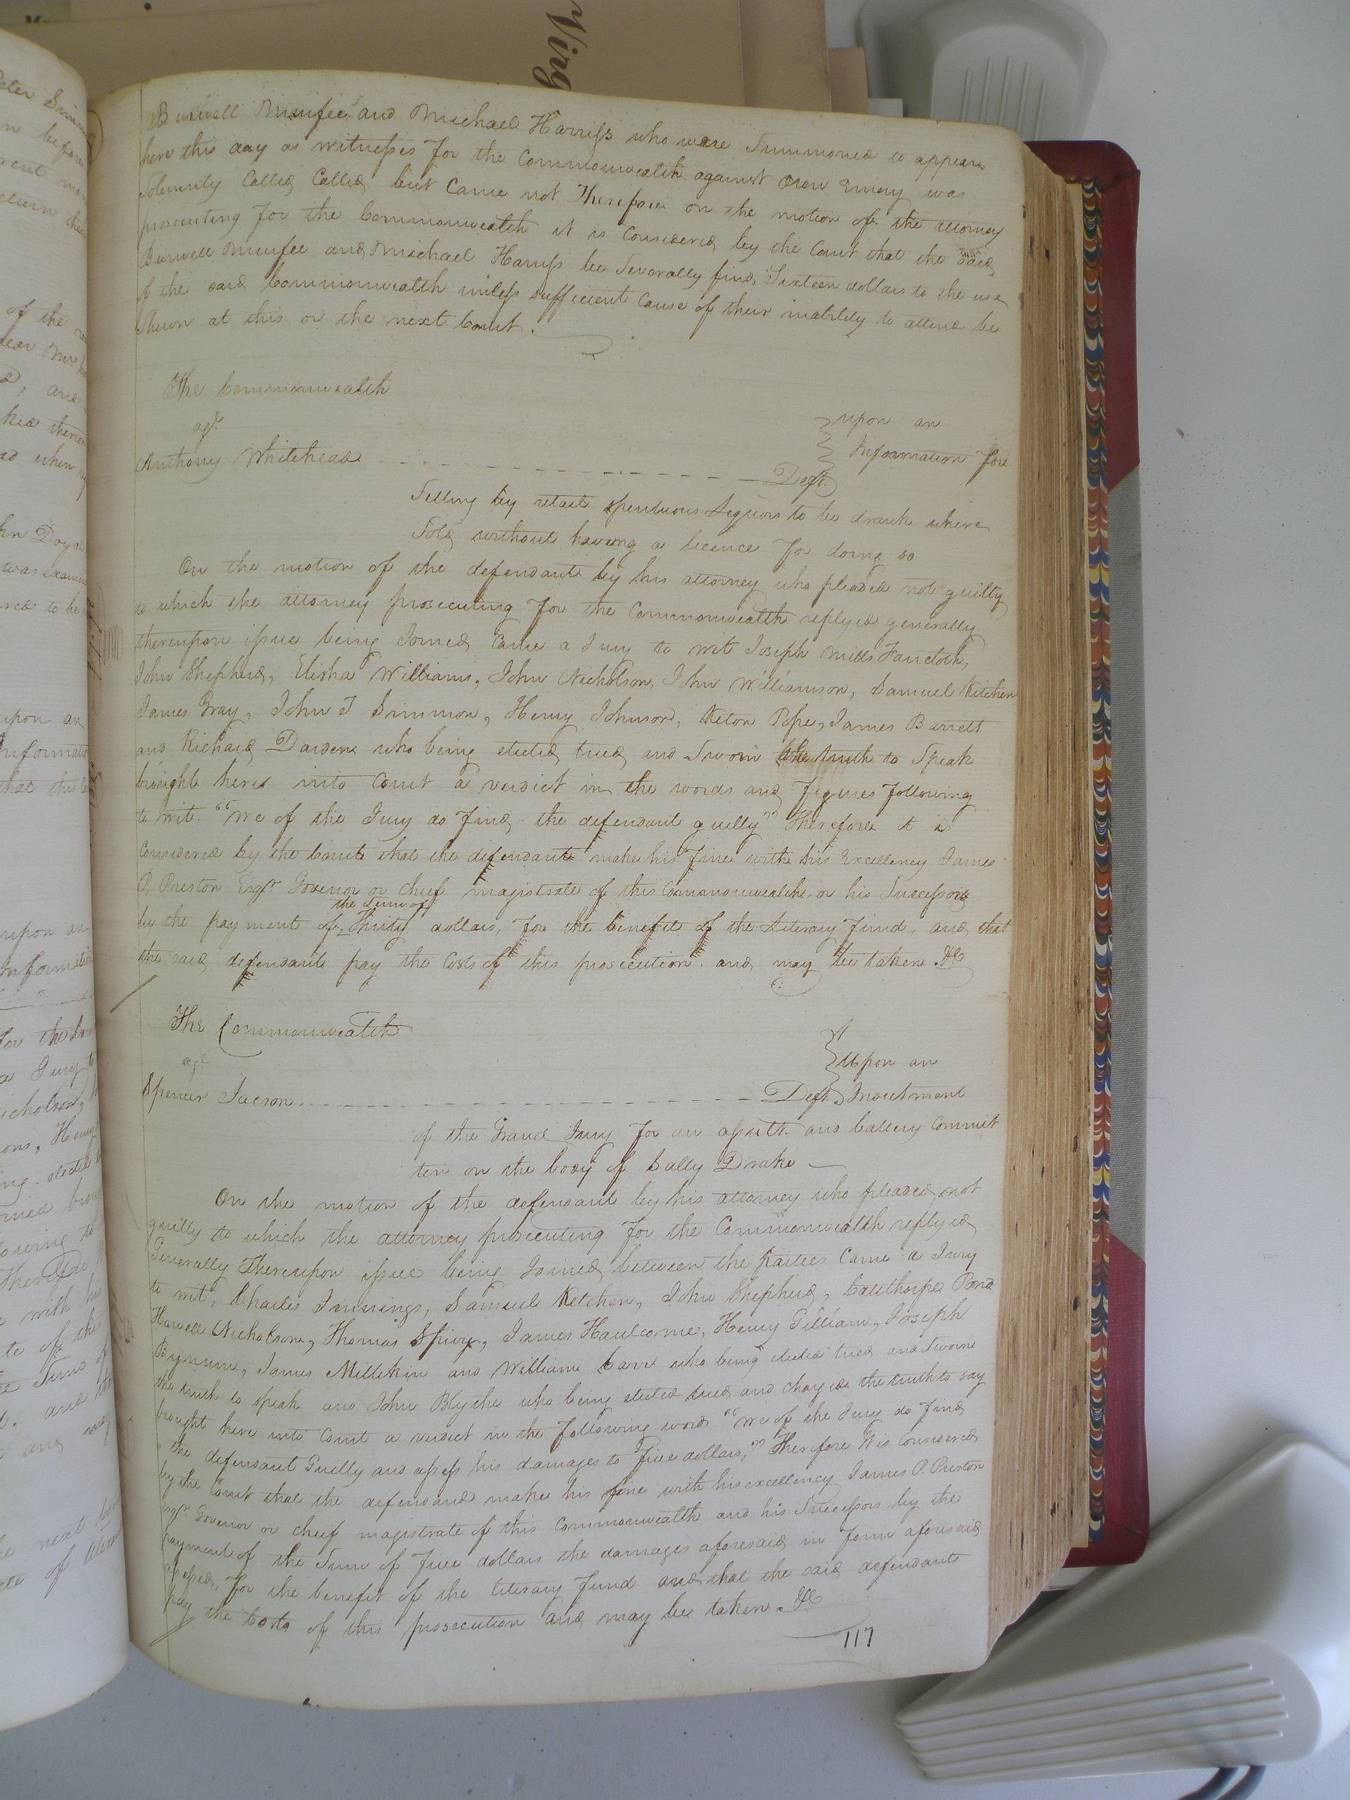 Virg
Burwell Munfee and Michael Harriss who ware Summoned to appear
here this day as witnesses for the Commonwealth against Oren Emery was
Solemnly Called Called but Came not Therefore on the motion of the attorney
prosecuting for the Commonwealth it is Considered by the Court that the said
Burwell Munfee and Michael Harriss be Severally fined Sixteen dollars to the use
of the said Commonwealth unless sufficient Cause of their inability to attend be
Shewn at this or the next Court.
The Commonwealth
agt
Anthony Whitehead Deft
upon an
Information for
Selling by retail Spirituous Liquors to be drank where
Sold without having a licence for doing so
On the motion of the defendant by his attorney who pleaded not guilty
to which the attorney prosecuting for the Commonwealth replyed generally
thereupon issue being Joined Came a Jury to wit Joseph Mills Fancloth,
John Shepherd, Elisha Williams, John Nicholson, John Williamson, Samuel Kitchen
James Gray, John T Simmon, Henry Johnson, Keton Pope, James Barrett
and Richard Darden who being elected tried and Sworn the truth to Speak
brought here into Court a verdict in the words and figures following
to wit "We of the Jury do find the defendant guilty" Therefore it is
Considered by the Court that the defendant make his fine with his Excellency James
P. Preston Esqr. Govenor or cheif magistrate of this Commonwealth or his Successors
by the payment of the Sum of Thirty dollars, for the benefit of the Literary Fund, and that
the said defendant pay the Costs of this prosecution and may be taken &c
The Commonwealth
agt
Spencer Jacson Deft.
Upon an
Inductment
of the Grand Jury for an assult and battery Commit
ten on the body of Sally Drake
On the motion of the defendant by his attorney who pleaded not
guilty to which the attorney prosecuting for the Commonwealth replyed
Generally Thereupon issue being Joined between the parties Came a Jury
to wit, Charles Innings, Samuel Ketchen, John Shepherd, Exlethorpe Pond
Harwell Nicholson, Thomas Spivy, James Haulcome, Henry Gilliam, Joseph
Bynum, James Millikin and William Carr who being elected tried and Sworn
the truth to speak and John Blythe who being elected tried and Charged the truth to say
brought here into Court a verdict in the following words "We of the Jury do find
the defendant Guilly and assess his damages to five dollars," Therefore it is Considered
by the Court that the defendant make his fine with his excellency James P. Preston
Esqr. Govenor or cheif magistrate of this Commonwealth and his Successors by the
payment of the Sum of five dollars the damages aforesaid in form aforesaid
assessed, for the benefit of the literary fund and that the said defendant
pay the Costs of this prosecution and may be taken &c
117